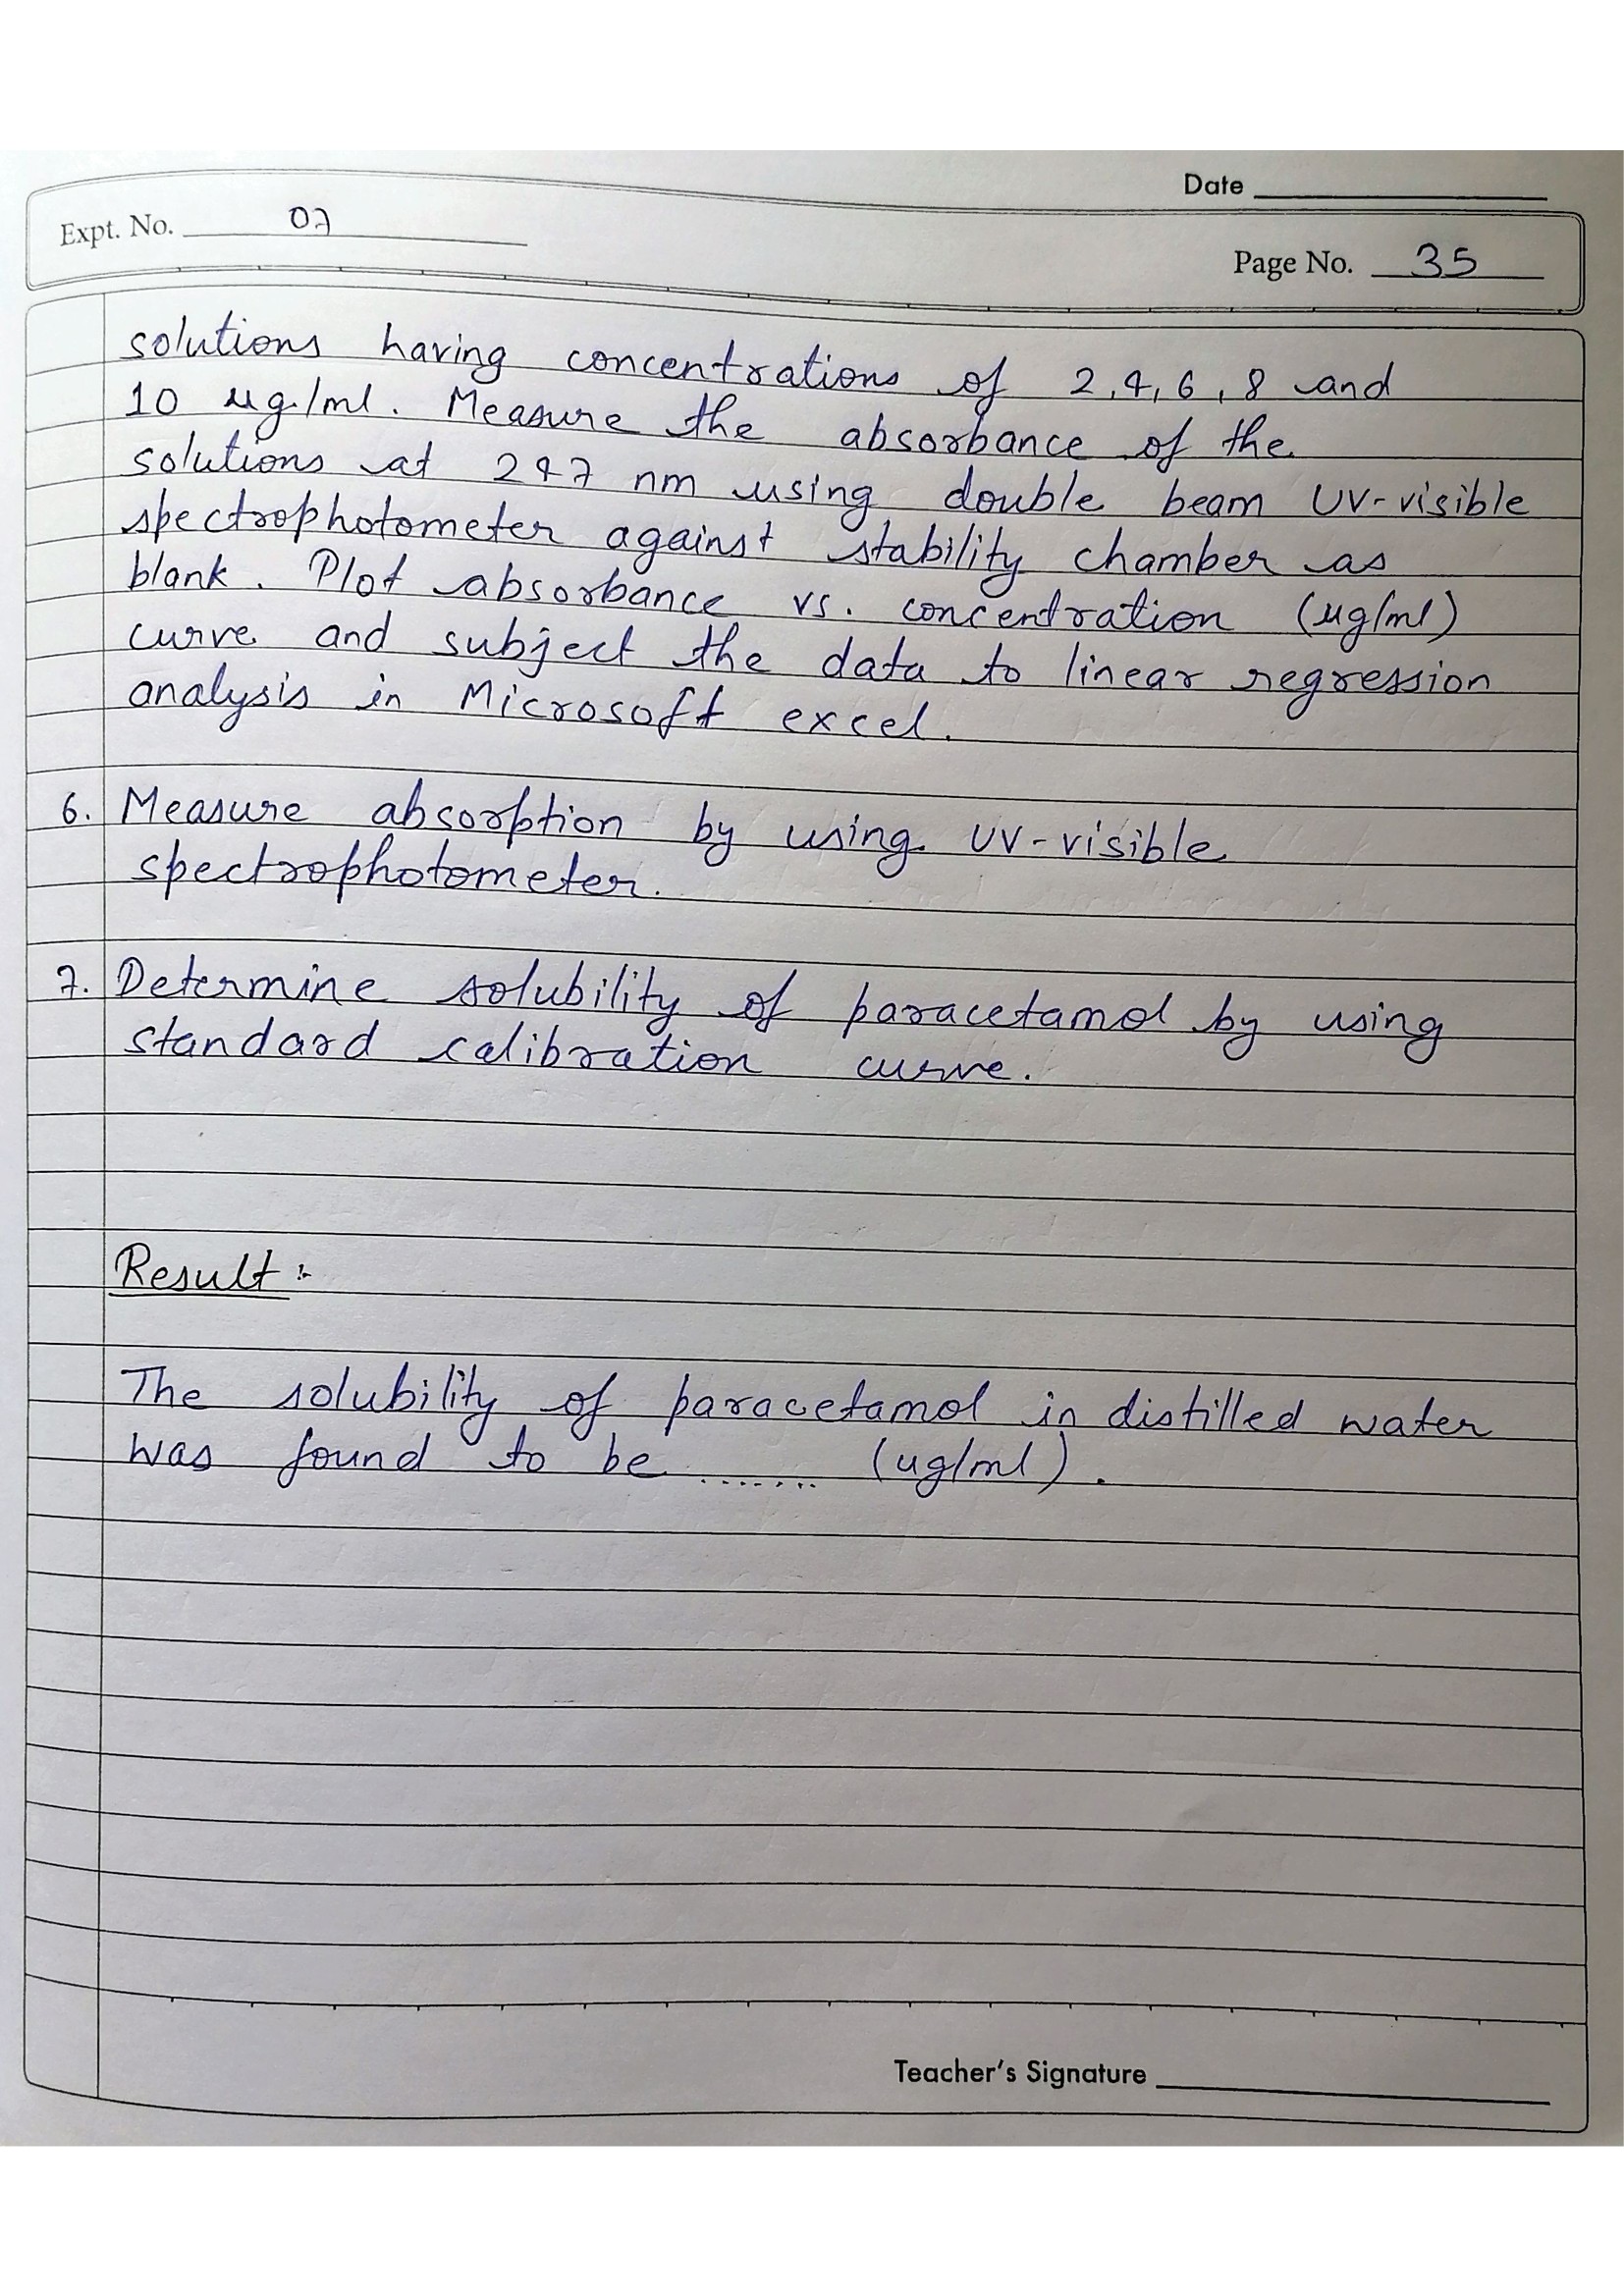 Date
Expt. No. 07
Page No. 35
solutions having concentrations of 2,4,6,8 and
10 µg/ml. Measure the absorbance of the
solutions at 247 nm using double beam UV-visible
spectrophotometer against stability chamber as
blank. Plot absorbance vs. concentration (µg/ml)
curve and subject the data to linear regression
analysis in Microsoft excel.
6. Measure absorption by using UV-visible
spectrophotometer.
7. Determine solubility of paracetamol by using
standard calibration curve.
Result :-
The solubility of paracetamol in distilled water
was found to be ....... (ug/ml).
Teacher's Signature